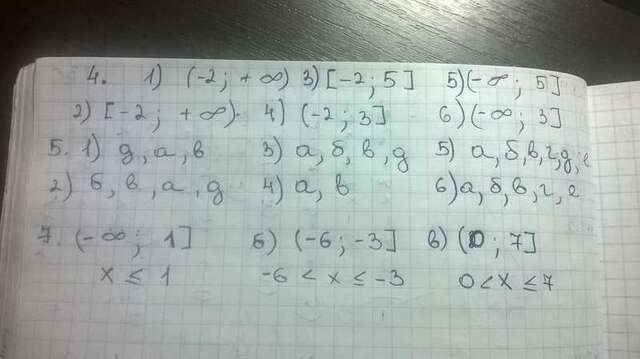 4. 1) (-2; +∞) 3) [-2; 5] 5) (-∞; 5]
2) [-2; +∞). 4) (-2; 3] 6) (-∞; 3]
5. 1) д, а, в 3) а, б, в, д 5) а, б, в, г, д, е
2) б, в, а, д 4) а, в 6) а, б, в, г, е
7. (-∞; 1] б) (-6; -3] в) (0; 7]
x ≤ 1 -6 < x ≤ -3 0 < x ≤ 7